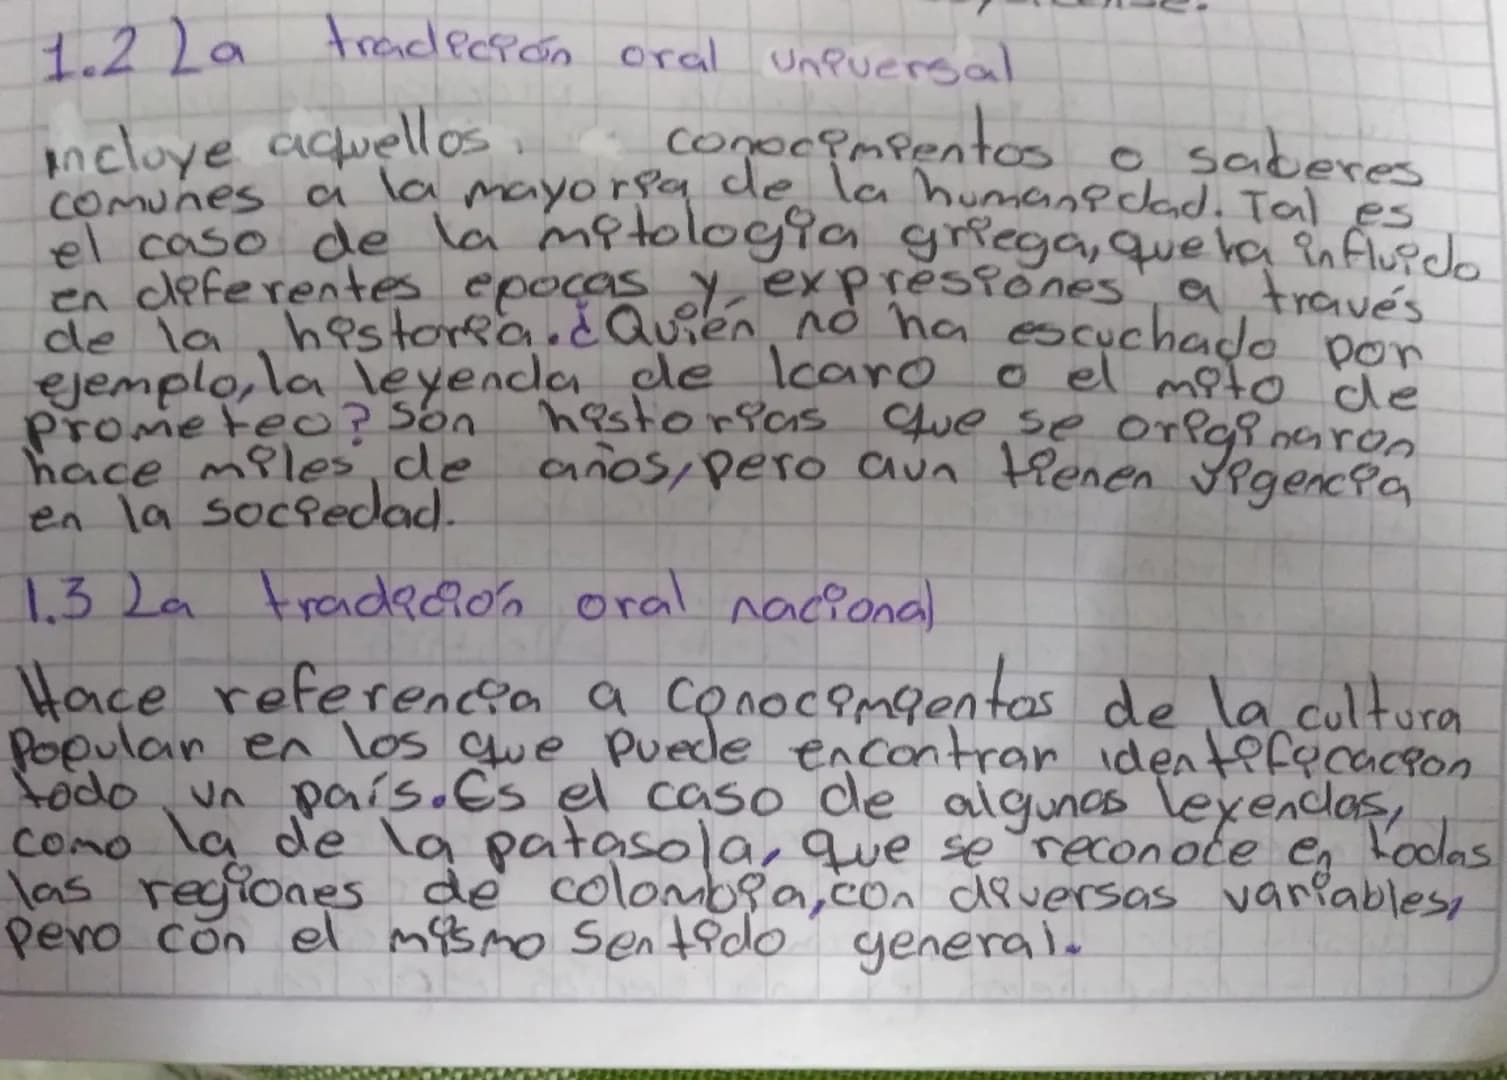 1.2 La tradición oral universal
incluye aquellos conocimientos o saberes
comunes a la mayoría de la humanidad. Tal es
el caso de la mitología griega, que ha influido
en diferentes epocas y expresiones a través
de la historia. ¿Quién no ha escuchado por
ejemplo, la leyenda de Icaro o el mito de
prometeo? Son historias que se originaron
hace miles de años, pero aun tienen vigencia
en la sociedad.
1.3 La tradición oral nacional
Hace referencia a conocimientos de la cultura
Popular en los que puede encontrar identificacion
todo un país. Es el caso de algunas leyendas,
como la de la patasola, que se reconoce en todas
las regiones de colombia, con diversas variables,
pero con el mismo sentido general.